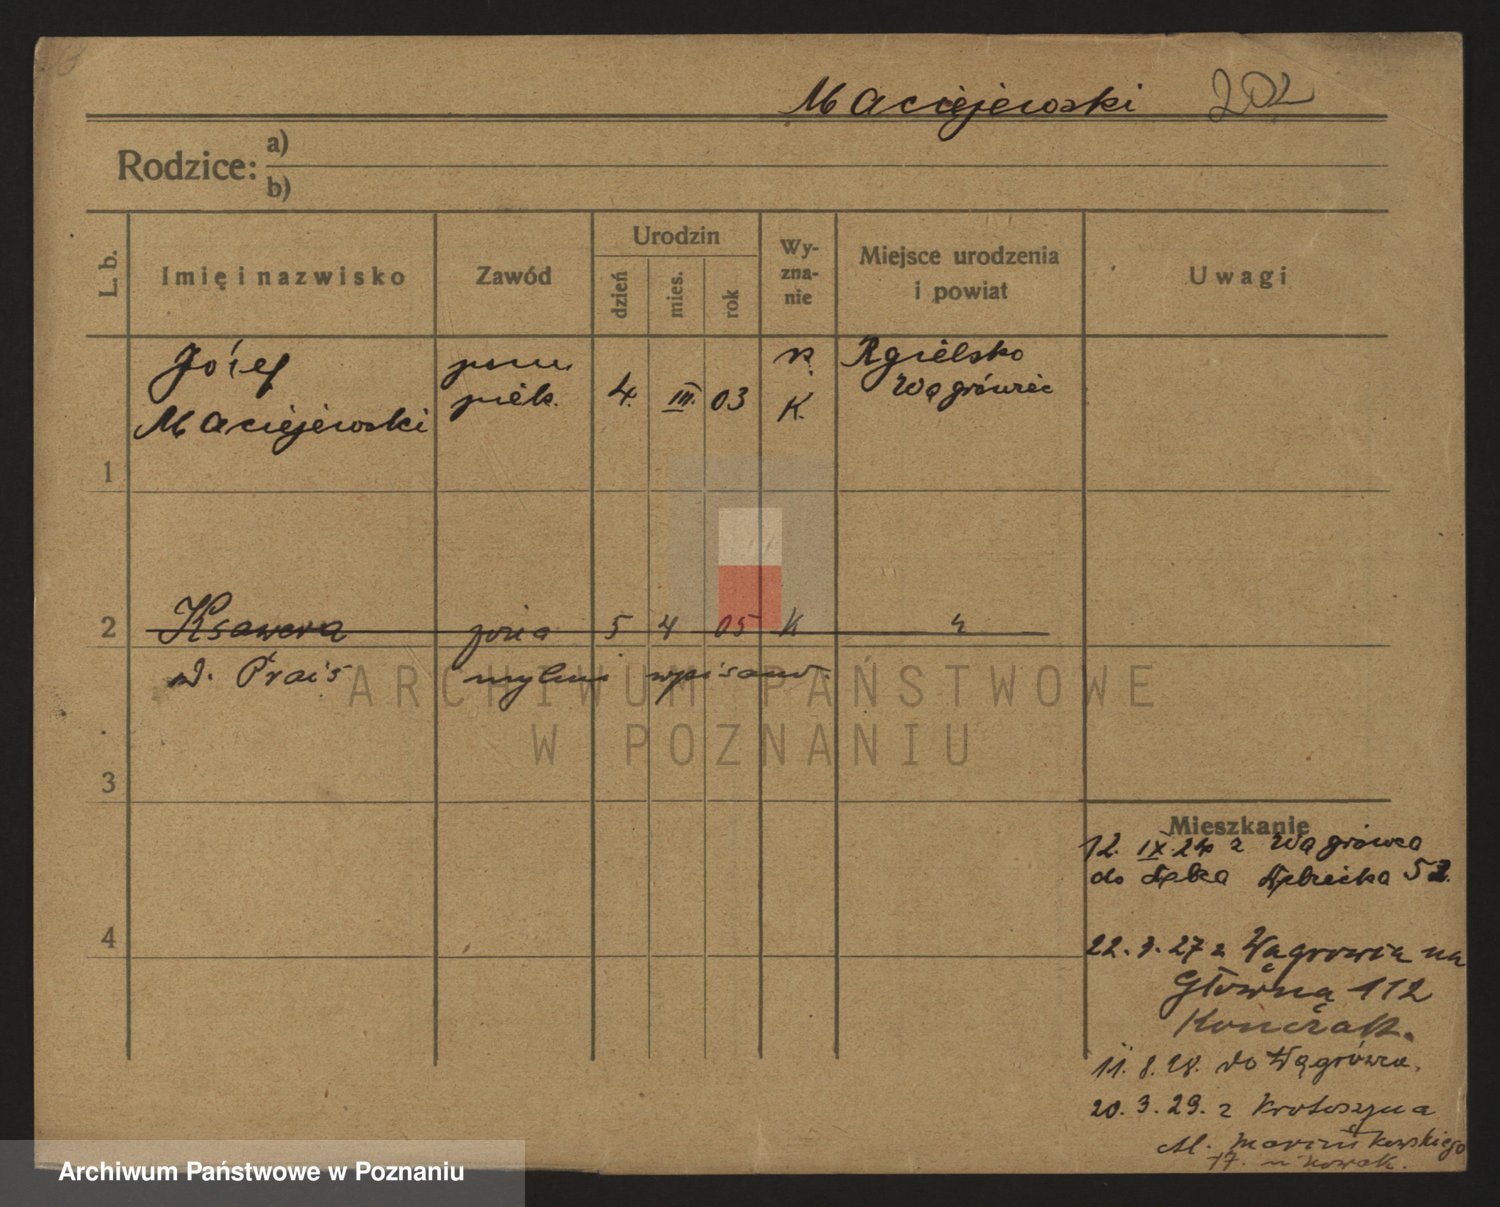 Maciejewski 202
Rodzice: a)
b)
L. b.
Imię i nazwisko
Zawód
Urodzin
dzień
mies.
rok
Wy-
zna-
nie
Miejsce urodzenia
i powiat
Uwagi
Józef
Maciejewski
pom.
piek.
4. III. 03
R.
K.
Rgielsko
Wągrówiec
1
2 Ksawera żona 5 4 05 K
d. Prais mylnie wpisano.
3
4
Mieszkanie
12. IX. 24 z Wągrówca
do 52.
22. 27 z Wągrowca na
Główną 112
11. 8. 28. do Wągrówca.
20. 3. 29. z Krotoszyna
Al. Marcinkowskiego
17. u Nowak.
ARCHIWUM PAŃSTWOWE
W POZNANIU
Archiwum Państwowe w Poznaniu